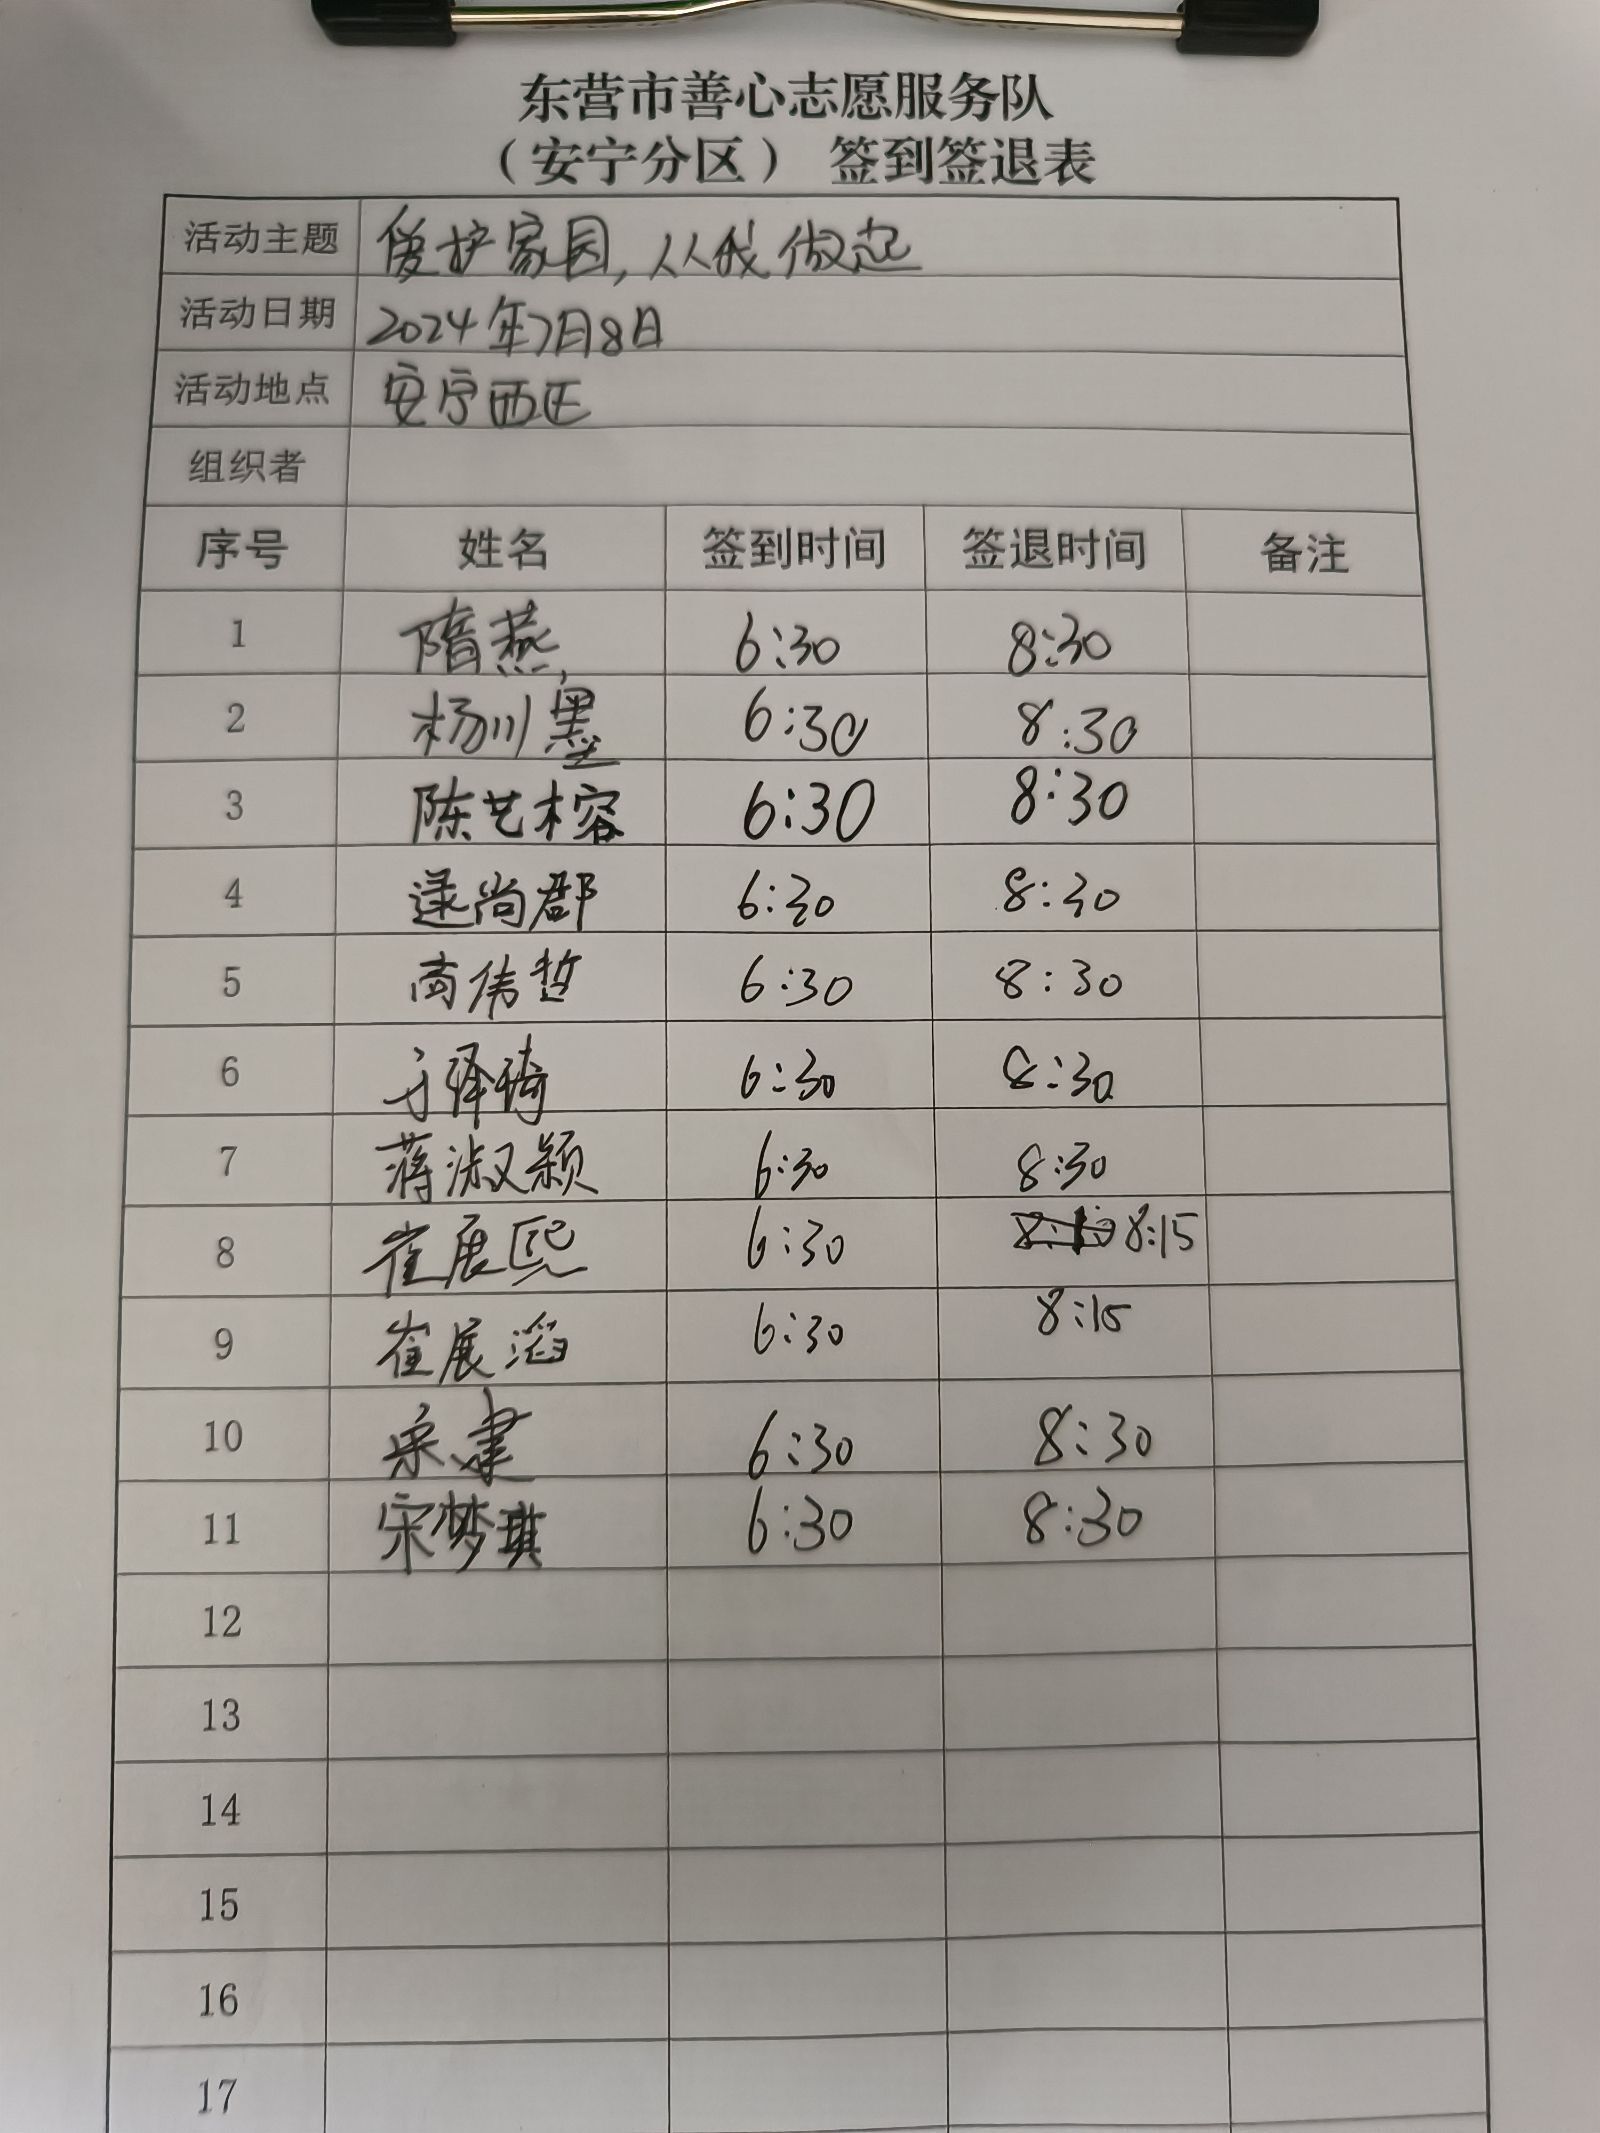 东营市善心志愿服务队
（安宁分区） 签到签退表
活动主题 爱护家园，从我做起
活动日期 2024年7月8日
活动地点 安宁西区
组织者
序号 姓名 签到时间 签退时间 备注
1 隋燕 6:30 8:30
2 杨川墨 6:30 8:30
3 陈艺榕 6:30 8:30
4 逯尚郡 6:30 8:30
5 商伟哲 6:30 8:30
6 于泽琦 6:30 8:30
7 蒋淑颖 6:30 8:30
8 崔展熙 6:30 8:15
9 崔展滔 6:30 8:15
10 6:30 8:30
11 宋梦琪 6:30 8:30
12
13
14
15
16
17